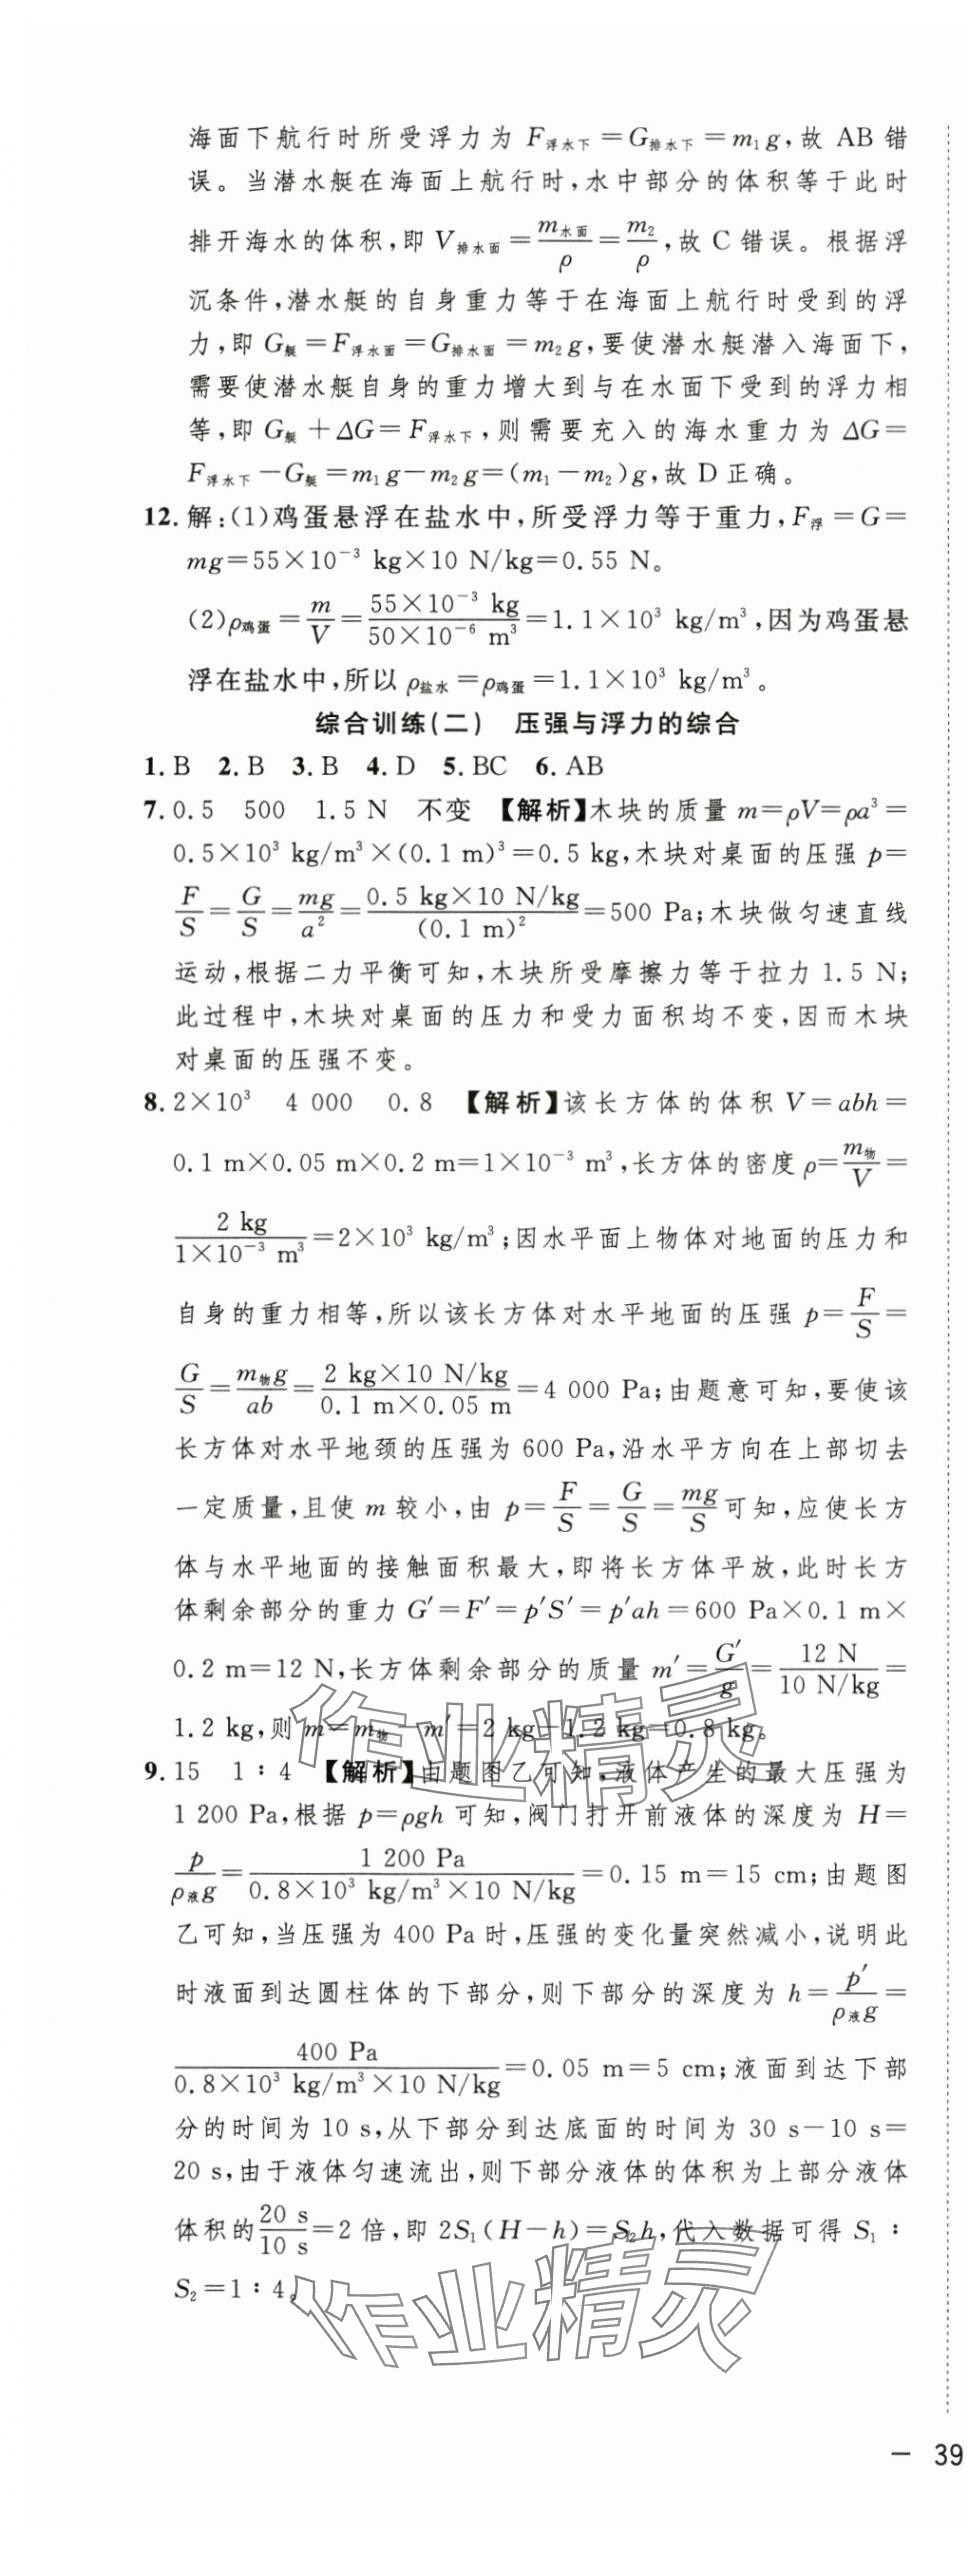 海面下航行时所受浮力为 F浮水下=G排水下=m₁g,故 AB 错
误。当潜水艇在海面上航行时,水中部分的体积等于此时
排开海水的体积,即 V排水面=m水面/ρ=m₂/ρ,故 C 错误。根据浮
沉条件,潜水艇的自身重力等于在海面上航行时受到的浮
力,即 G艇=F浮水面=G排水面=m₂g,要使潜水艇潜入海面下,
需要使潜水艇自身的重力增大到与在水面下受到的浮力相
等,即 G艇+ΔG=F浮水下,则需要充入的海水重力为 ΔG=
F浮水下-G艇=m₁g-m₂g=(m₁-m₂)g,故 D 正确。
12. 解:(1)鸡蛋悬浮在盐水中,所受浮力等于重力,F浮=G=
mg=55×10⁻³ kg×10 N/kg=0.55 N。
(2)ρ鸡蛋=m/V=(55×10⁻³ kg)/(50×10⁻⁶ m³)=1.1×10³ kg/m³,因为鸡蛋悬
浮在盐水中,所以 ρ盐水=ρ鸡蛋=1.1×10³ kg/m³。
综合训练(二) 压强与浮力的综合
1. B 2. B 3. B 4. D 5. BC 6. AB
7. 0.5 500 1.5 N 不变 【解析】木块的质量 m=ρV=ρa³=
0.5×10³ kg/m³×(0.1 m)³=0.5 kg,木块对桌面的压强 p=
F/S=G/S=mg/a²=(0.5 kg×10 N/kg)/(0.1 m)²=500 Pa;木块做匀速直线
运动,根据二力平衡可知,木块所受摩擦力等于拉力 1.5 N;
此过程中,木块对桌面的压力和受力面积均不变,因而木块
对桌面的压强不变。
8. 2×10³ 4 000 0.8 【解析】该长方体的体积 V=abh=
0.1 m×0.05 m×0.2 m=1×10⁻³ m³,长方体的密度 ρ=m物/V=
(2 kg)/(1×10⁻³ m³)=2×10³ kg/m³;因水平面上物体对地面的压力和
自身的重力相等,所以该长方体对水平地面的压强 p=F/S=
G/S=m物g/ab=(2 kg×10 N/kg)/(0.1 m×0.05 m)=4 000 Pa;由题意可知,要使该
长方体对水平地颈的压强为 600 Pa,沿水平方向在上部切去
一定质量,且使 m 较小,由 p=F/S=G/S=mg/S可知,应使长方
体与水平地面的接触面积最大,即将长方体平放,此时长方
体剩余部分的重力 G′=F′=p′S′=p′ah=600 Pa×0.1 m×
0.2 m=12 N,长方体剩余部分的质量 m′=G′/g=(12 N)/(10 N/kg)=
1.2 kg,则 m=m物-m′=2 kg-1.2 kg=0.8 kg。
作业精灵
9. 15 1∶4 【解析】由题图乙可知,液体产生的最大压强为
1 200 Pa,根据 p=ρgh 可知,阀门打开前液体的深度为 H=
p/ρ液g=(1 200 Pa)/(0.8×10³ kg/m³×10 N/kg)=0.15 m=15 cm;由题图
乙可知,当压强为 400 Pa 时,压强的变化量突然减小,说明此
时液面到达圆柱体的下部分,则下部分的深度为 h=p′/ρ液g=
(400 Pa)/(0.8×10³ kg/m³×10 N/kg)=0.05 m=5 cm;液面到达下部
分的时间为 10 s,从下部分到达底面的时间为 30 s-10 s=
20 s,由于液体匀速流出,则下部分液体的体积为上部分液体
体积的(20 s)/(10 s)=2 倍,即 2S₁(H-h)=S₂h,代入数据可得 S₁∶
S₂=1∶4。
作业精灵
— 39